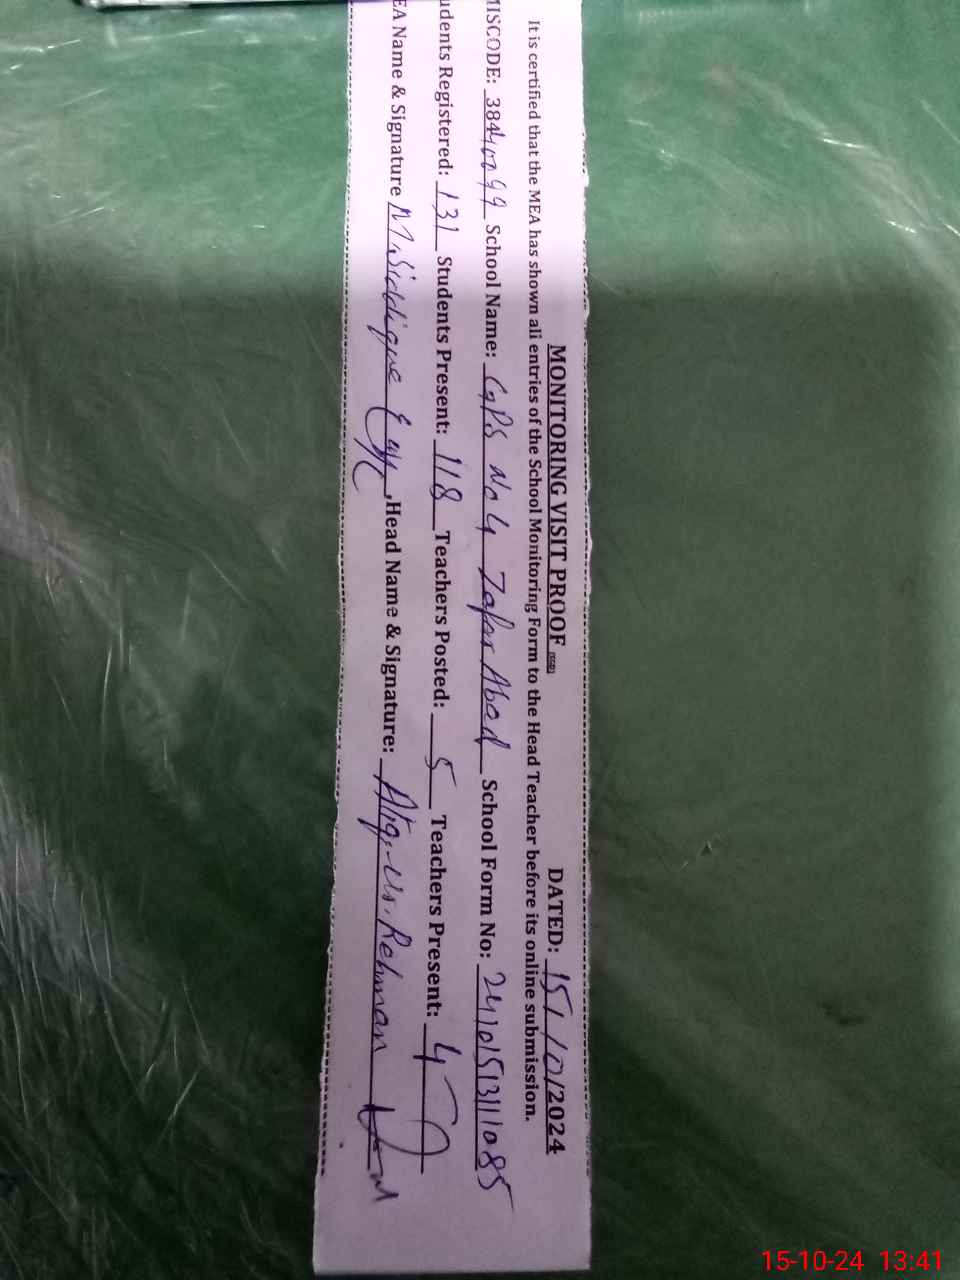 MONITORING VISIT PROOF DATED: 15/10/2024
It is certified that the MEA has shown all entries of the School Monitoring Form to the Head Teacher before its online submission.
MISCODE: School Name: GPS No 4 Zafar Abad School Form No: 24101513111085
udents Registered: 131 Students Present: 118 Teachers Posted: 5 Teachers Present: 4
EA Name & Signature M. Siddique ,Head Name & Signature: Atiq-Ur-Rehman
15-10-24 13:41